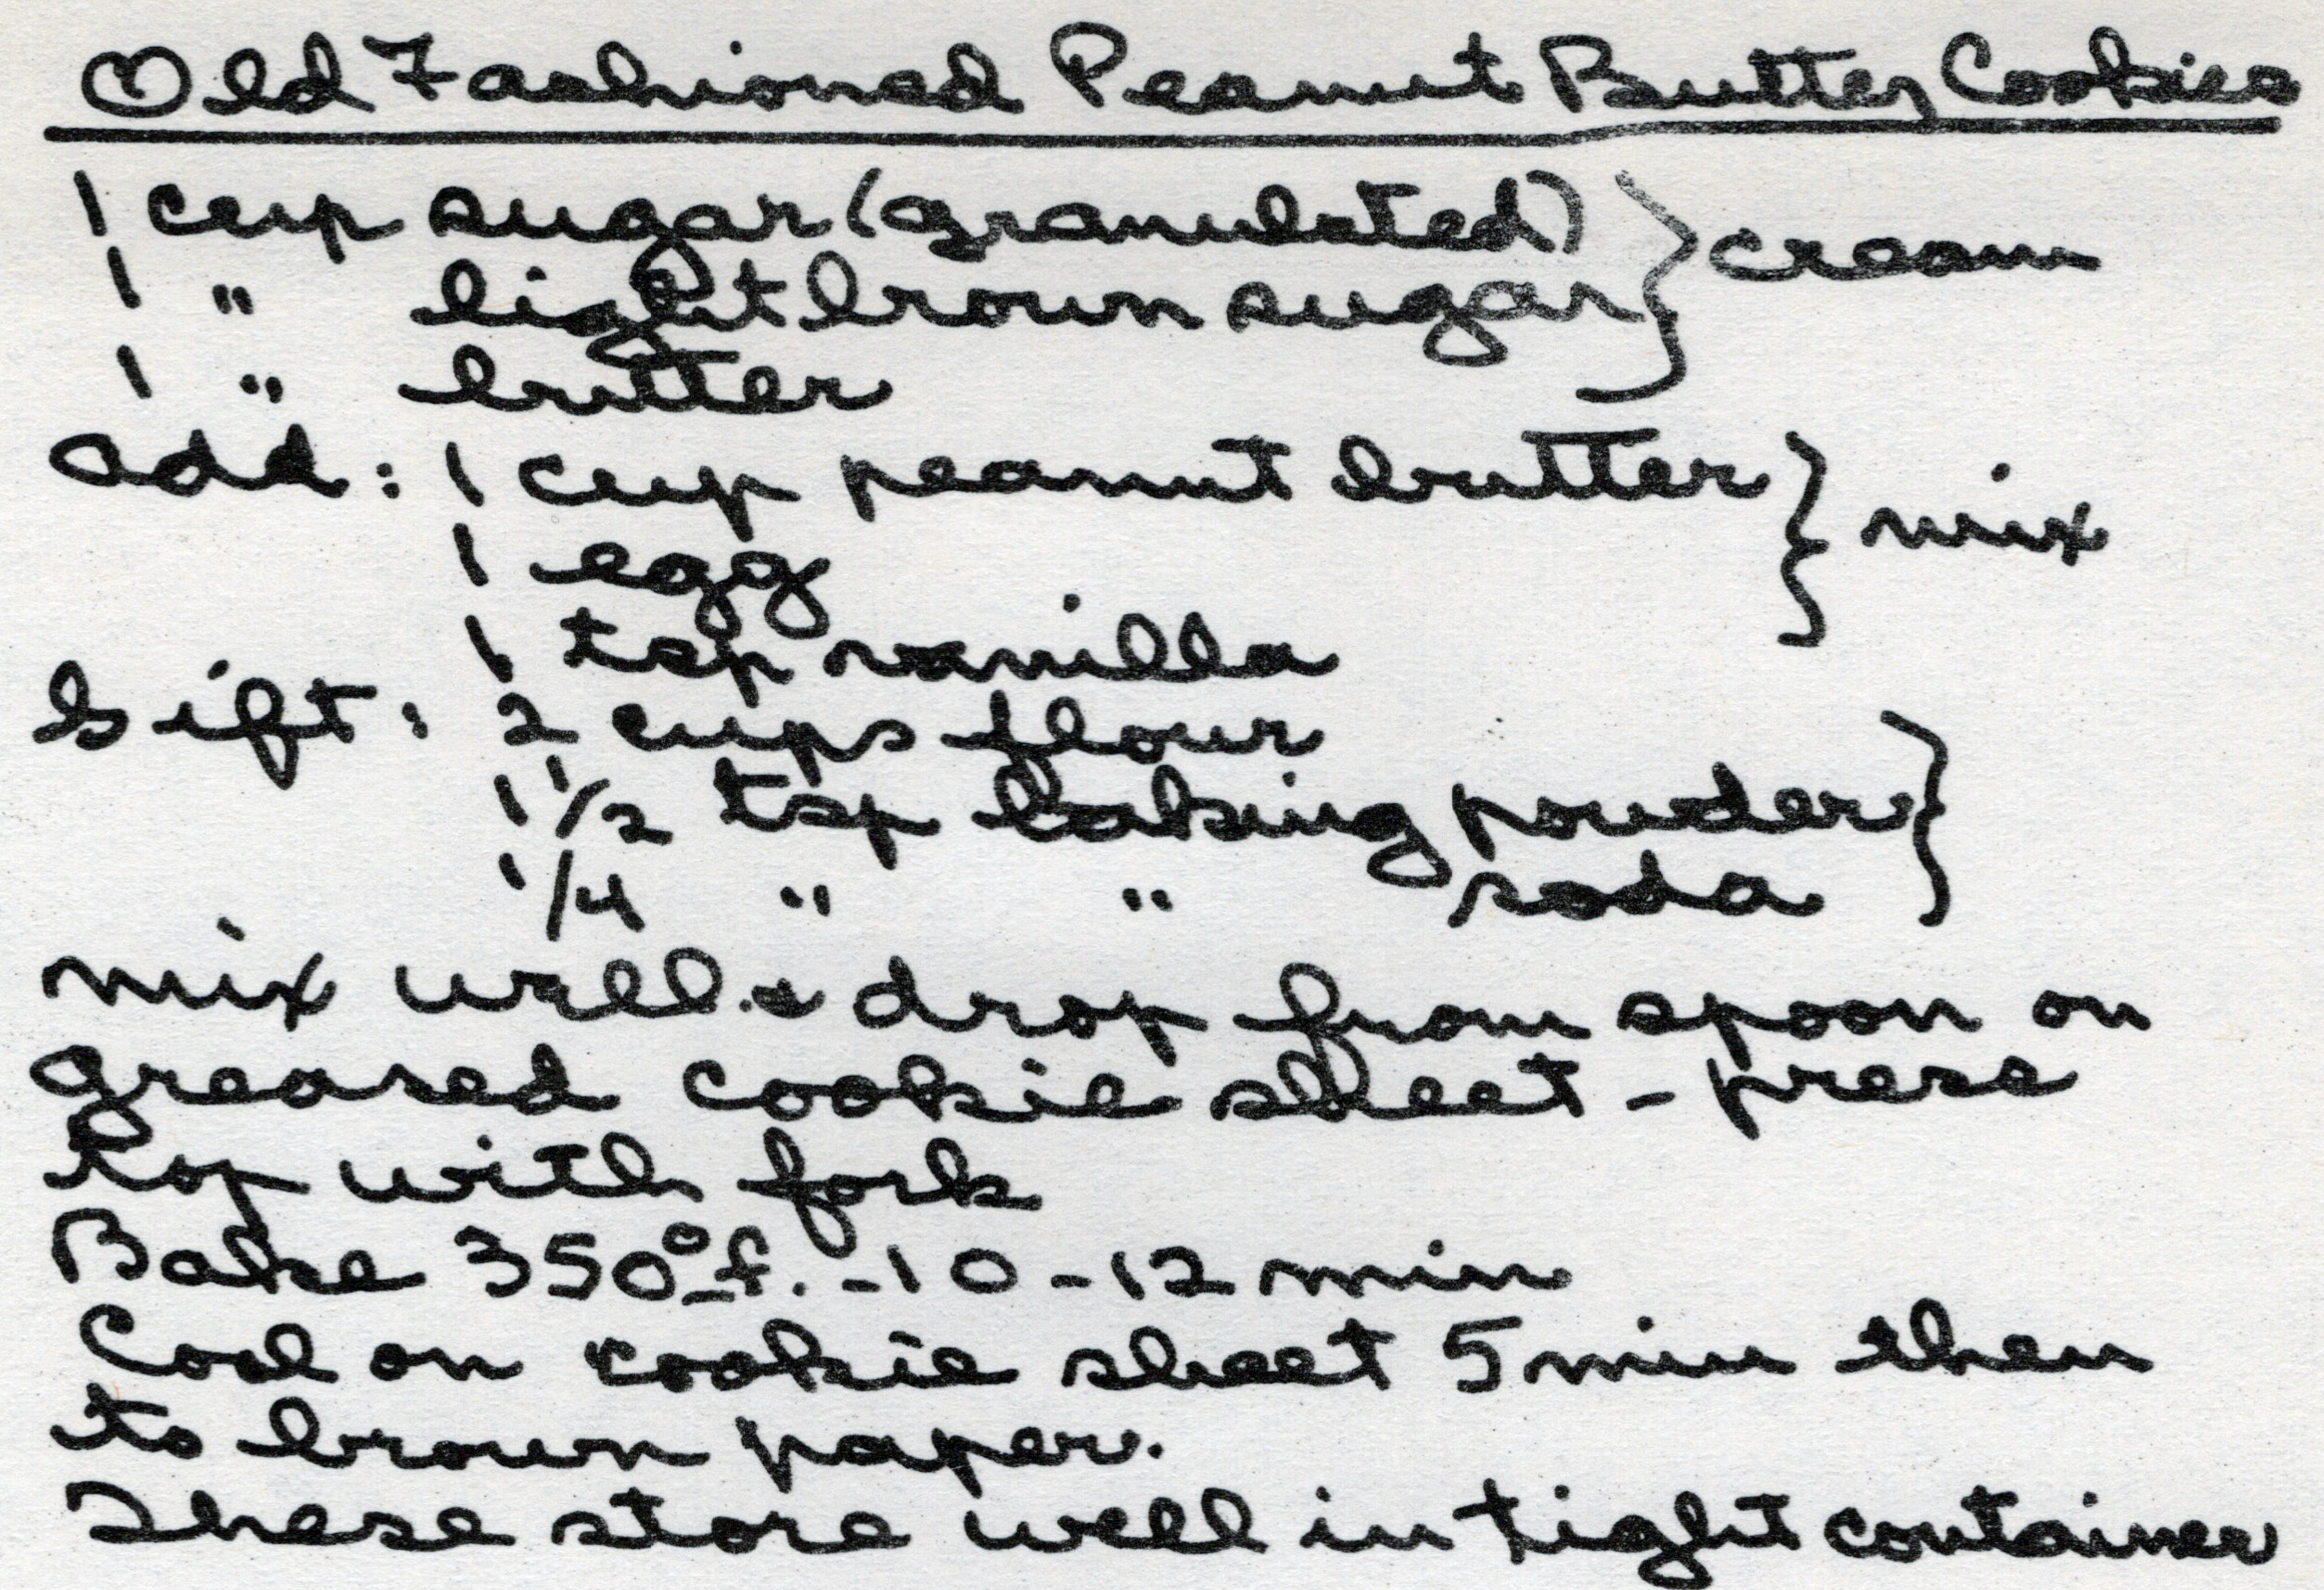 Old Fashioned Peanut Butter Cookies
1 cup sugar (granulated) } cream
1 " light brown sugar
1 " butter
add: 1 cup peanut butter } mix
1 egg
1 tsp vanilla
Sift: 2 cups flour
1 1/2 tsp baking powder }
1/4 " " soda
mix well & drop from spoon on
greased cookie sheet - press
top with fork
Bake 350° f. - 10 - 12 min
Cool on cookie sheet 5 min then
to brown paper.
These store well in tight container